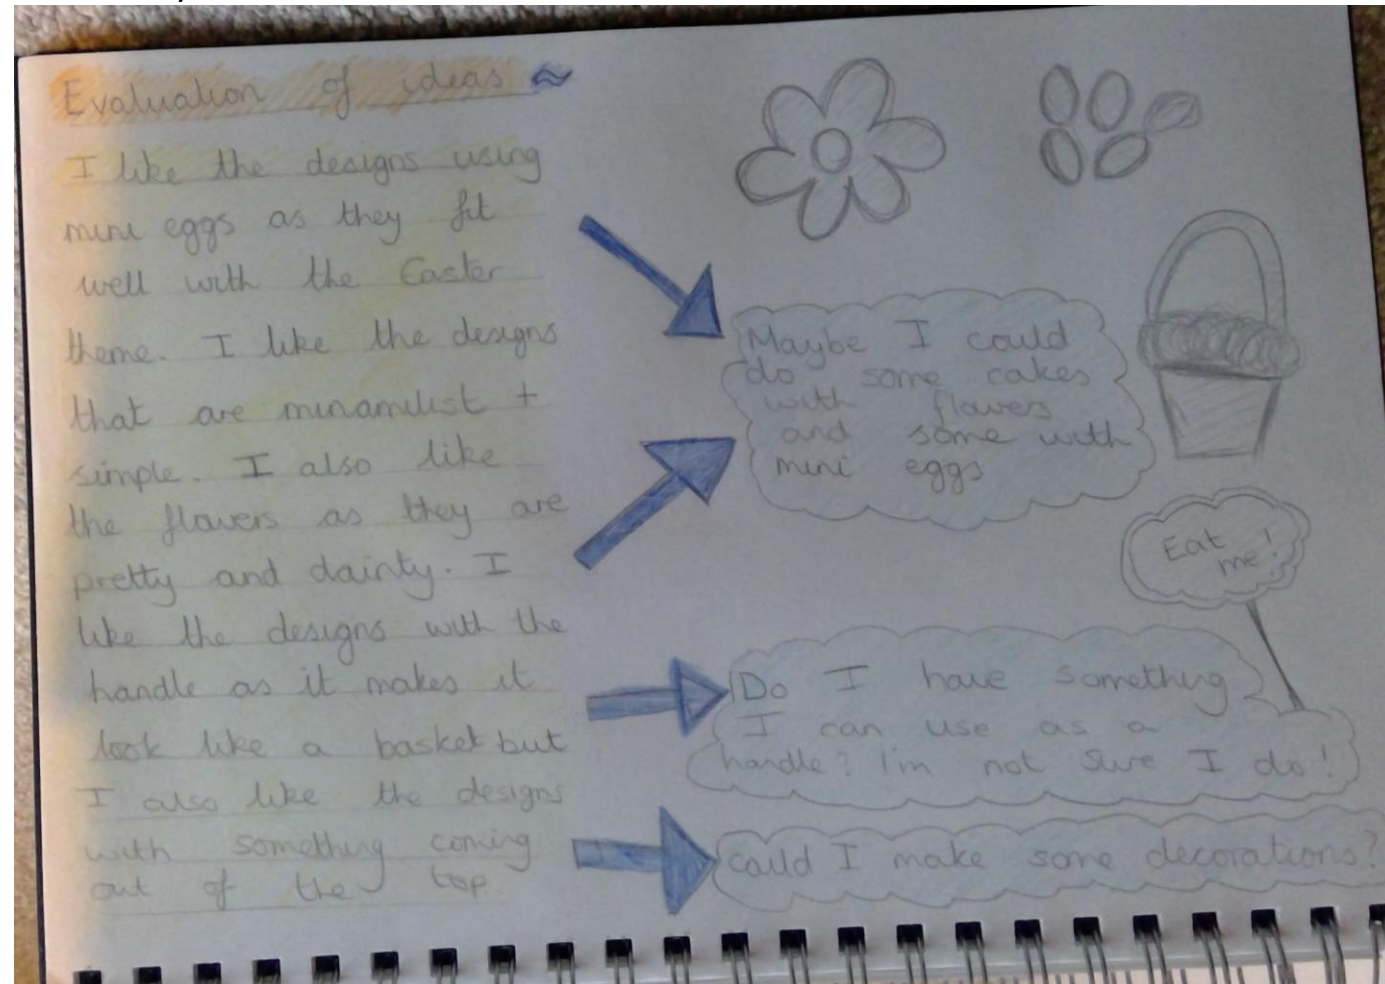 Evaluation of ideas ~
I like the designs using
mini eggs as they fit
well with the Easter
theme. I like the designs
that are minamilist +
simple. I also like
the flowers as they are
pretty and dainty. I
like the designs with the
handle as it makes it
look like a basket but
I also like the designs
with something coming
out of the top
Maybe I could
do some cakes
with flowers
and some with
mini eggs
Eat
me!
Do I have something
I can use as a
handle? I'm not sure I do!
Could I make some decorations?